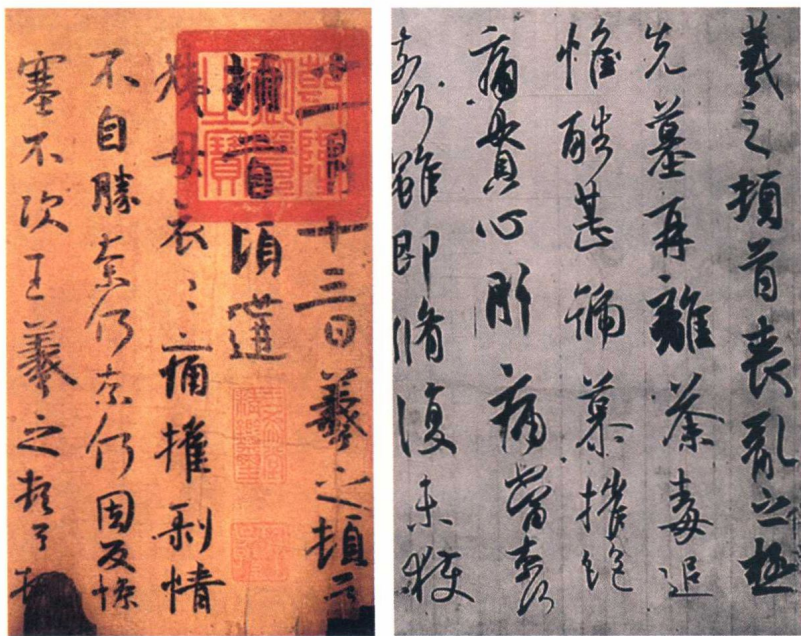 十一月十三日羲之頓首
頓首頃遘
姨母哀〻痛摧剝情
不自勝奈何奈何因反慘
塞不次王羲之頓首頓
乾隆
御覽
之寶
羲之頓首喪亂之極
先墓再離荼毒追
惟酷甚號慕摧絕
痛貫心肝痛當奈何
奈何雖即脩復未獲